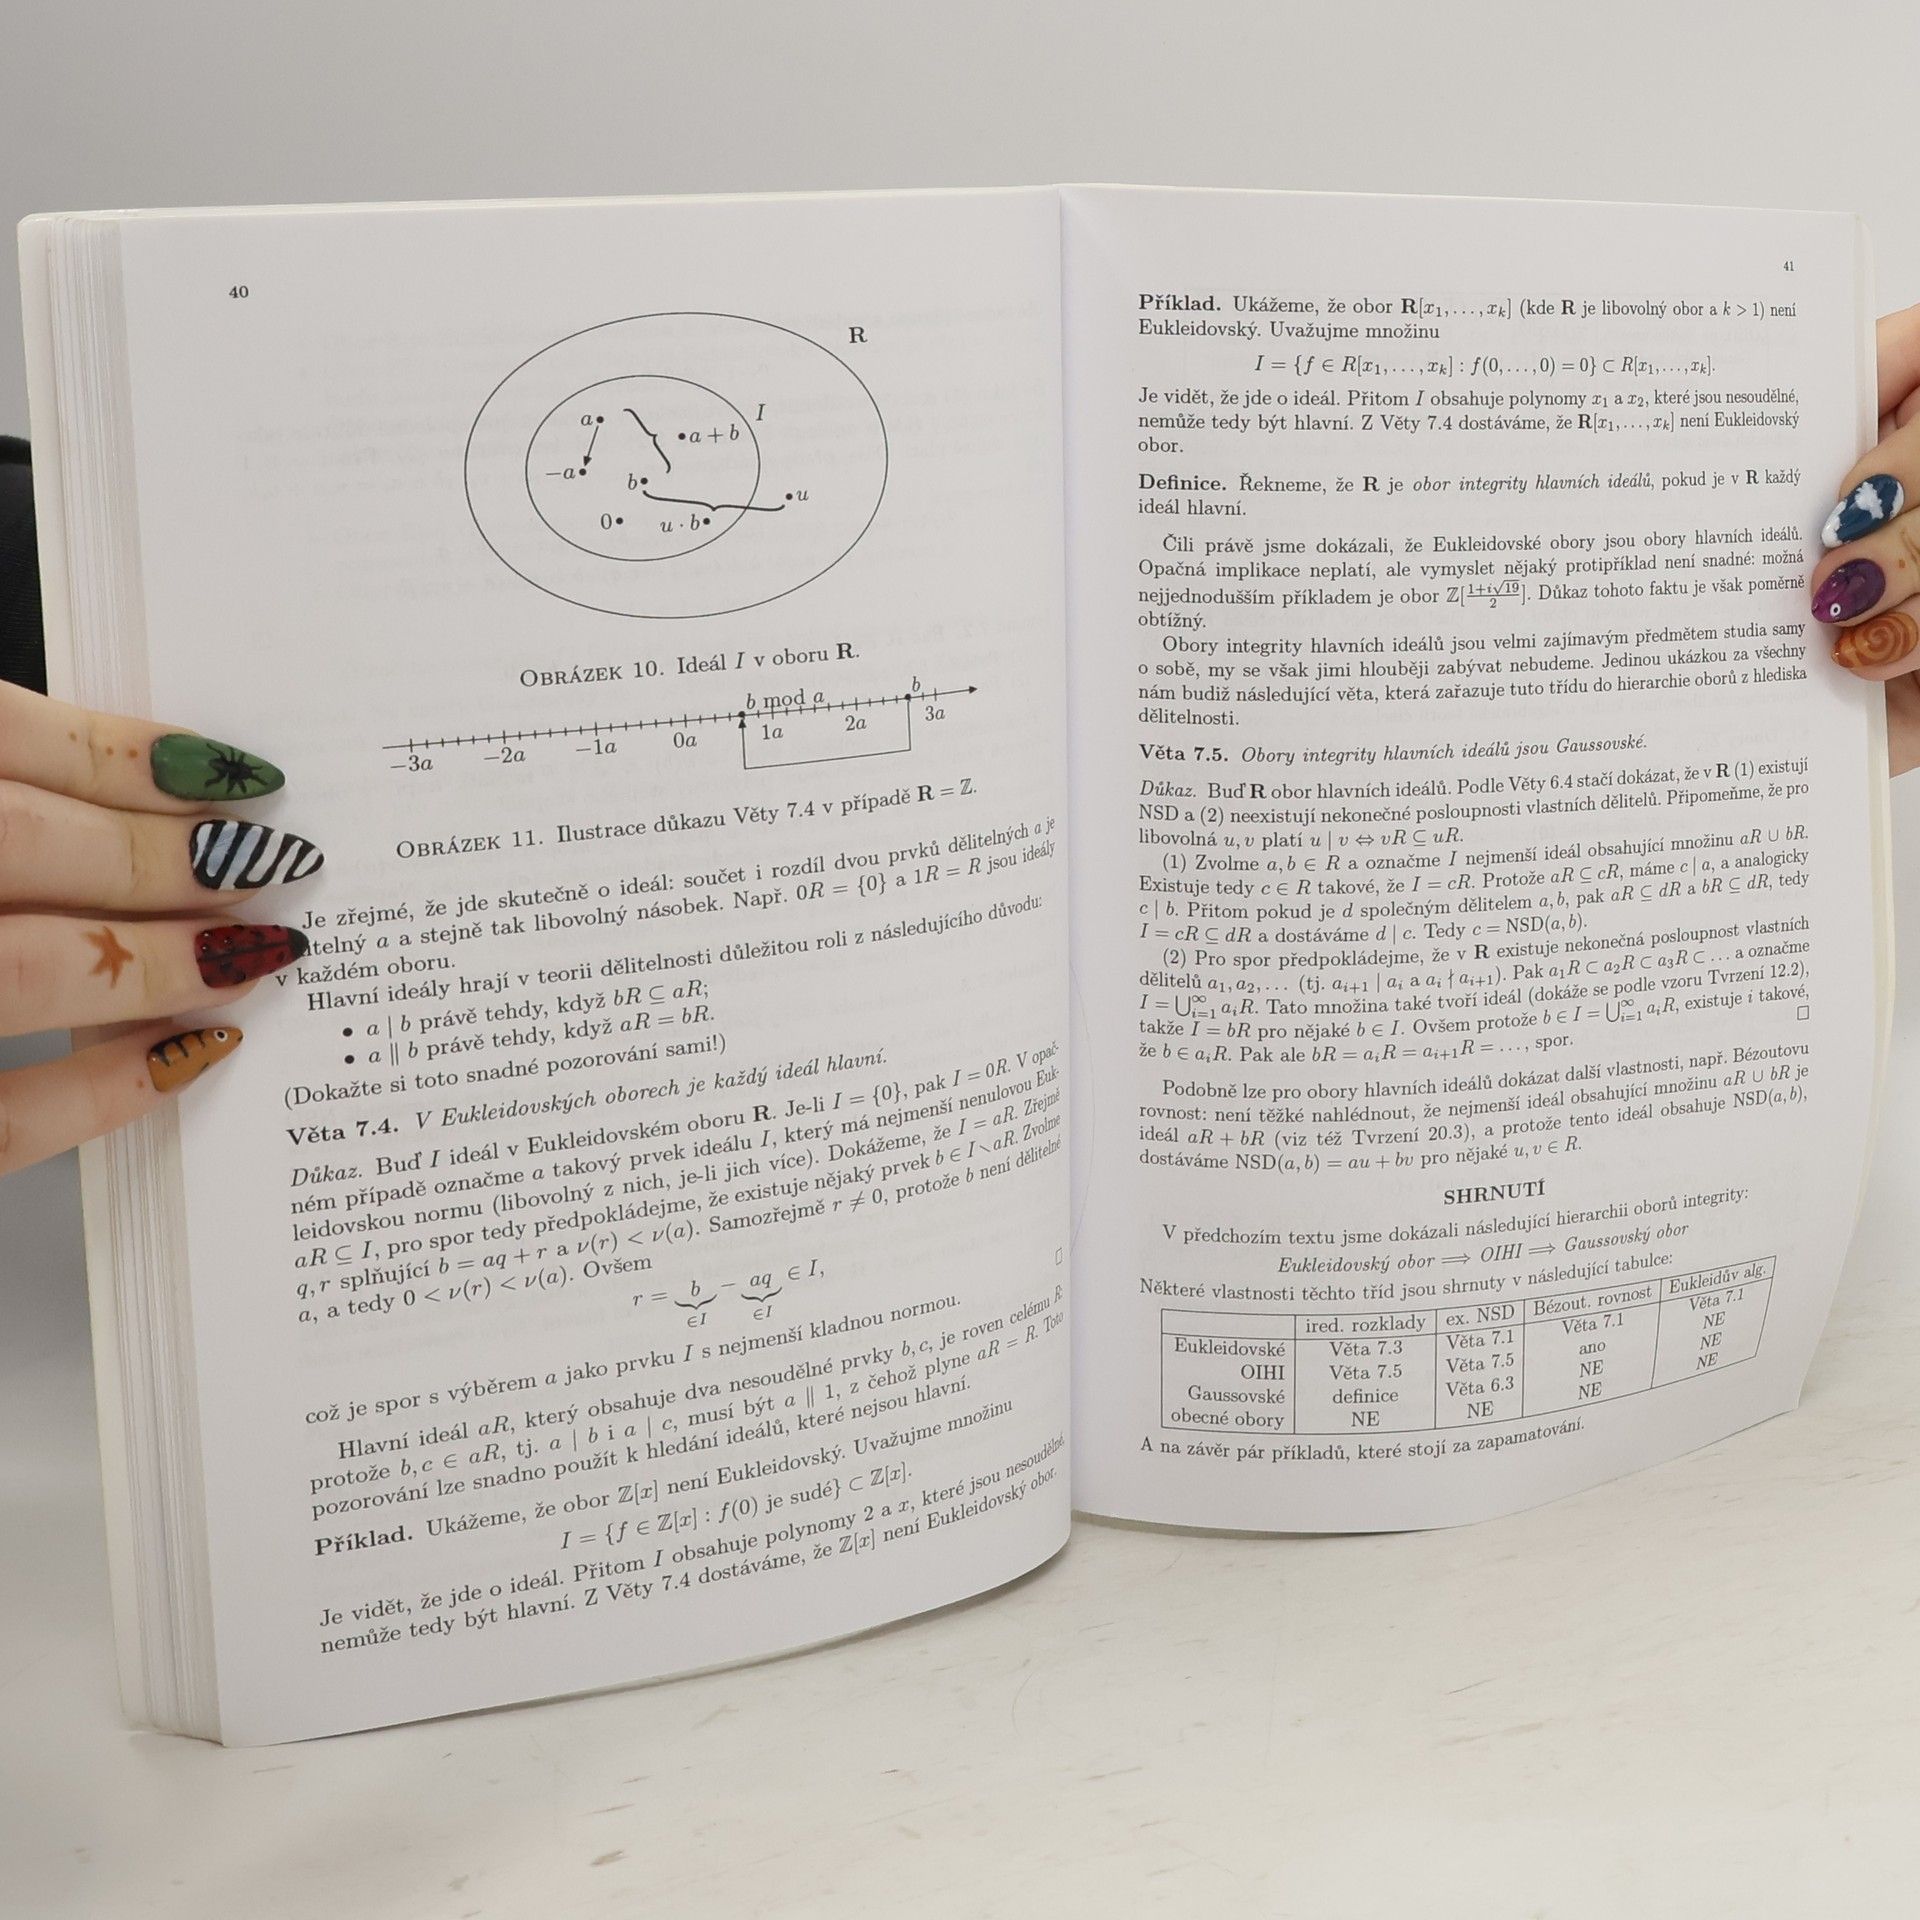 40
R
I
a
a + b
−a
b
u
0
u · b
OBRÁZEK 10. Ideál I v oboru R.
b mod a
b
−3a −2a −1a 0a 1a 2a 3a
OBRÁZEK 11. Ilustrace důkazu Věty 7.4 v případě R = ℤ.
Je zřejmé, že jde skutečně o ideál: součet i rozdíl dvou prvků dělitelných a je
itelný a a stejně tak libovolný násobek. Např. 0R = {0} a 1R = R jsou ideály
v každém oboru.
Hlavní ideály hrají v teorii dělitelnosti důležitou roli z následujícího důvodu:
• a | b právě tehdy, když bR ⊆ aR;
• a ∥ b právě tehdy, když aR = bR.
(Dokažte si toto snadné pozorování sami!)
Věta 7.4. V Eukleidovských oborech je každý ideál hlavní.
Důkaz. Buď I ideál v Eukleidovském oboru R. Je-li I = {0}, pak I = 0R. V opač-
ném případě označme a takový prvek ideálu I, který má nejmenší nenulovou Euk-
leidovskou normu (libovolný z nich, je-li jich více). Dokážeme, že I = aR. Zřejmě
aR ⊆ I, pro spor tedy předpokládejme, že existuje nějaký prvek b ∈ I∖aR. Zvolme
q, r splňující b = aq + r a ν(r) < ν(a). Samozřejmě r ≠ 0, protože b není dělitelné
a, a tedy 0 < ν(r) < ν(a). Ovšem
r = b − aq ∈ I,
∈I ∈I
což je spor s výběrem a jako prvku I s nejmenší kladnou normou. □
Hlavní ideál aR, který obsahuje dva nesoudělné prvky b, c, je roven celému R:
protože b, c ∈ aR, tj. a | b i a | c, musí být a ∥ 1, z čehož plyne aR = R. Toto
pozorování lze snadno použít k hledání ideálů, které nejsou hlavní.
Příklad. Ukážeme, že obor ℤ[x] není Eukleidovský. Uvažujme množinu
I = {f ∈ ℤ[x] : f(0) je sudé} ⊂ ℤ[x].
Je vidět, že jde o ideál. Přitom I obsahuje polynomy 2 a x, které jsou nesoudělné,
nemůže tedy být hlavní. Z Věty 7.4 dostáváme, že ℤ[x] není Eukleidovský obor.
41
Příklad. Ukážeme, že obor R[x₁, . . . , xₖ] (kde R je libovolný obor a k > 1) není
Eukleidovský. Uvažujme množinu
I = {f ∈ R[x₁, . . . , xₖ] : f(0, . . . , 0) = 0} ⊂ R[x₁, . . . , xₖ].
Je vidět, že jde o ideál. Přitom I obsahuje polynomy x₁ a x₂, které jsou nesoudělné,
nemůže tedy být hlavní. Z Věty 7.4 dostáváme, že R[x₁, . . . , xₖ] není Eukleidovský
obor.
Definice. Řekneme, že R je obor integrity hlavních ideálů, pokud je v R každý
ideál hlavní.
Čili právě jsme dokázali, že Eukleidovské obory jsou obory hlavních ideálů.
Opačná implikace neplatí, ale vymyslet nějaký protipříklad není snadné: možná
nejjednodušším příkladem je obor ℤ[(1+i√19)/2]. Důkaz tohoto faktu je však poměrně
obtížný.
Obory integrity hlavních ideálů jsou velmi zajímavým předmětem studia samy
o sobě, my se však jimi hlouběji zabývat nebudeme. Jedinou ukázkou za všechny
nám budiž následující věta, která zařazuje tuto třídu do hierarchie oborů z hlediska
dělitelnosti.
Věta 7.5. Obory integrity hlavních ideálů jsou Gaussovské.
Důkaz. Buď R obor hlavních ideálů. Podle Věty 6.4 stačí dokázat, že v R (1) existují
NSD a (2) neexistují nekonečné posloupnosti vlastních dělitelů. Připomeňme, že pro
libovolná u, v platí u | v ⇔ vR ⊆ uR.
(1) Zvolme a, b ∈ R a označme I nejmenší ideál obsahující množinu aR ∪ bR.
Existuje tedy c ∈ R takové, že I = cR. Protože aR ⊆ cR, máme c | a, a analogicky
c | b. Přitom pokud je d společným dělitelem a, b, pak aR ⊆ dR a bR ⊆ dR, tedy
I = cR ⊆ dR a dostáváme d | c. Tedy c = NSD(a, b).
(2) Pro spor předpokládejme, že v R existuje nekonečná posloupnost vlastních
dělitelů a₁, a₂, . . . (tj. aᵢ₊₁ | aᵢ a aᵢ ∤ aᵢ₊₁). Pak a₁R ⊂ a₂R ⊂ a₃R ⊂ . . . a označme
I = ⋃ᵢ₌₁^∞ aᵢR. Tato množina také tvoří ideál (dokáže se podle vzoru Tvrzení 12.2),
takže I = bR pro nějaké b ∈ I. Ovšem protože b ∈ I = ⋃ᵢ₌₁^∞ aᵢR, existuje i takové,
že b ∈ aᵢR. Pak ale bR = aᵢR = aᵢ₊₁R = . . . , spor. □
Podobně lze pro obory hlavních ideálů dokázat další vlastnosti, např. Bézoutovu
rovnost: není těžké nahlédnout, že nejmenší ideál obsahující množinu aR ∪ bR je
ideál aR + bR (viz též Tvrzení 20.3), a protože tento ideál obsahuje NSD(a, b),
dostáváme NSD(a, b) = au + bv pro nějaké u, v ∈ R.
SHRNUTÍ
V předchozím textu jsme dokázali následující hierarchii oborů integrity:
Eukleidovský obor ⟹ OIHI ⟹ Gaussovský obor
Některé vlastnosti těchto tříd jsou shrnuty v následující tabulce:
ired. rozklady ex. NSD Bézout. rovnost Eukleidův alg.
Eukleidovské Věta 7.3 Věta 7.1 Věta 7.1 Věta 7.1
OIHI Věta 7.5 Věta 7.5 ano NE
Gaussovské definice Věta 6.3 NE NE
obecné obory NE NE NE NE
A na závěr pár příkladů, které stojí za zapamatování.